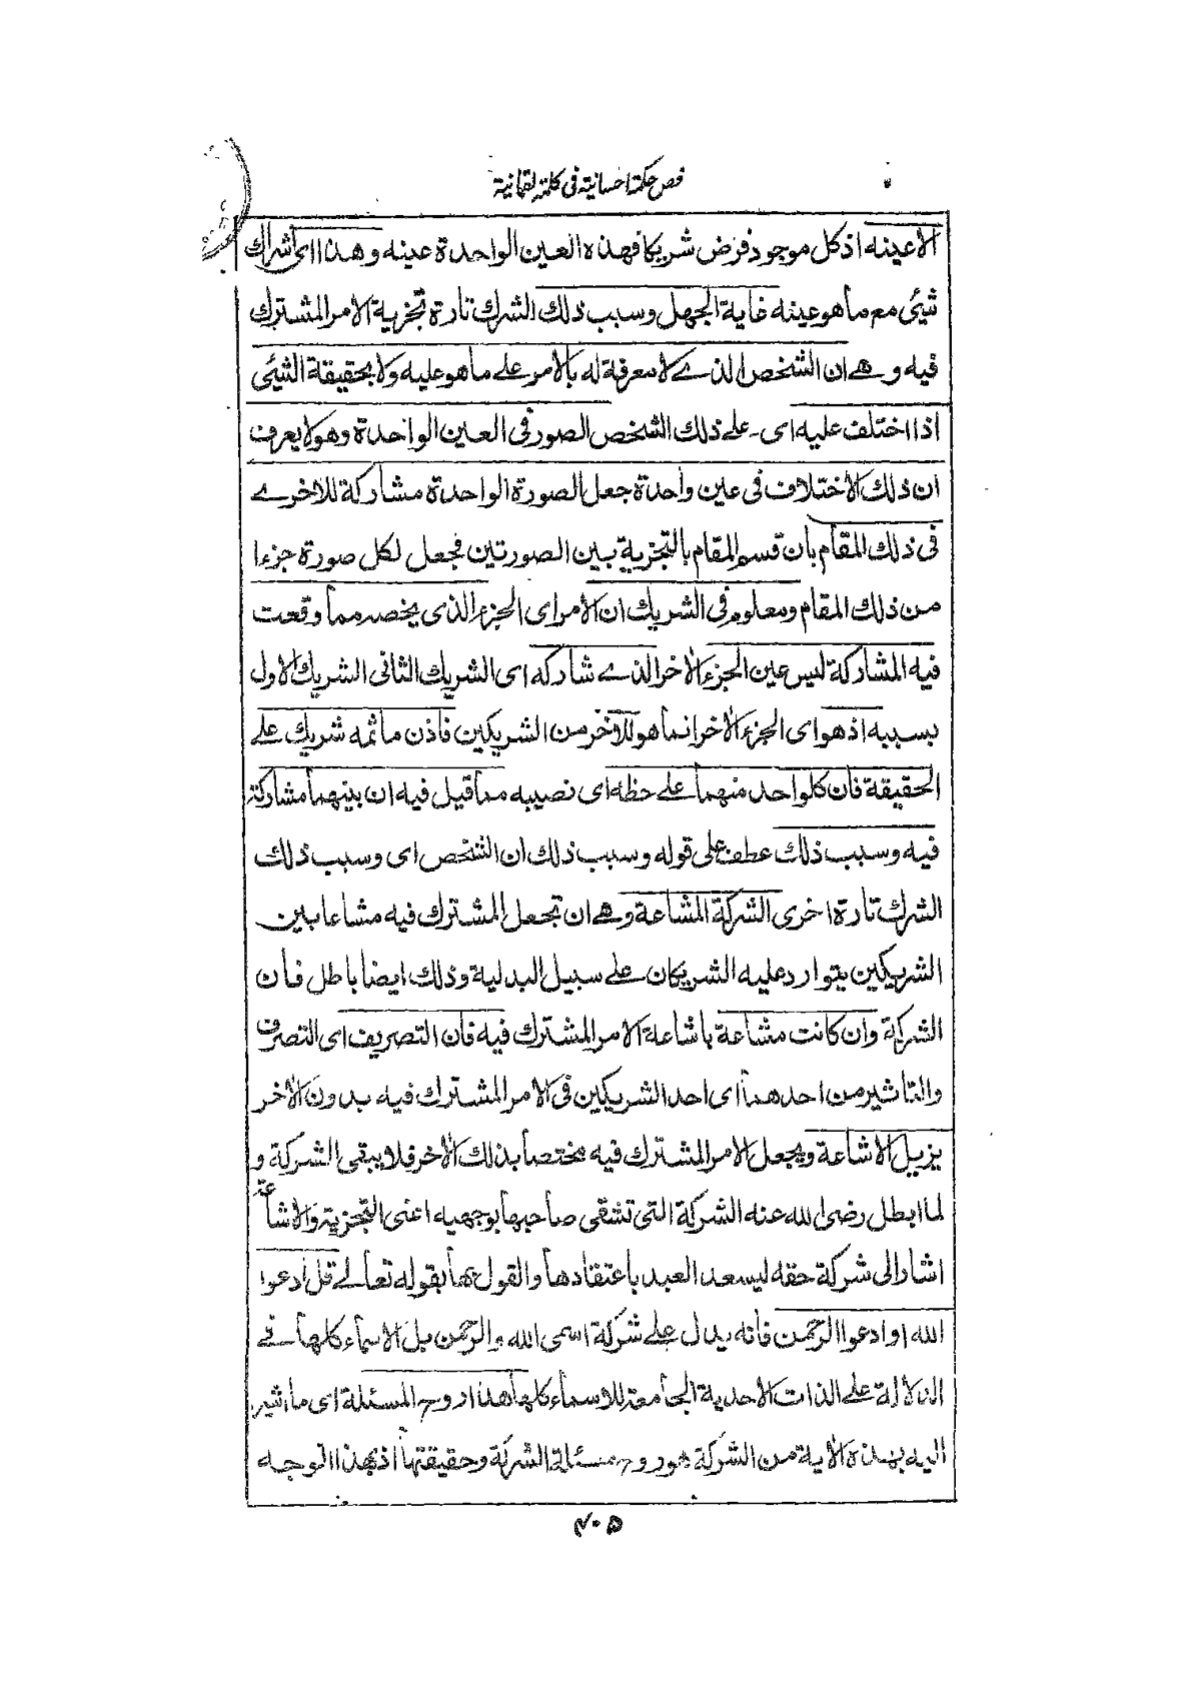 فص حكمة احسانية فى كلمة لقمانية
الاعينه اذ كل موجود فرض شريكا فهذه العين الواحدة عينه وهذا اى اشراك
شيئى مع ما هو عينه غاية الجهل وسبب ذلك الشرك تارة تجزية الامر المشترك
فيه وهے ان الشخص الذے لا معرفة له بالامر علے ما هو عليه ولا بحقيقة الشيئى
اذا اختلف عليه اى علے ذلك الشخص الصور فى العين الواحدة وهو لا يعرف
ان ذلك الاختلاف فى عين واحدة جعل الصورة الواحدة مشاركة للاخرے
فى ذلك المقام بان قسم المقام بالتجزية بين الصورتين فجعل لكل صورة جزءا
من ذلك المقام ومعلوم فى الشريك ان الامر اى الجزء الذى يخصه مما وقعت
فيه المشاركة ليس عين الجزء الاخر الذے شاركه اى الشريك الثانى الشريك الاول
بسببه اذ هو اى الجزء الاخر انما هو للاخر من الشريكين فاذن ما ثمه شريك علے
الحقيقة فان كلواحد منهما علے حظه اى نصيبه مما قيل فيه ان بينهما مشاركة
فيه وسبب ذلك عطف على قوله وسبب ذلك ان الشخص اى وسبب ذلك
الشرك تارة اخرى الشركة المشاعة وهے ان تجعل المشترك فيه مشاعا بين
الشريكين يتوارد عليه الشريكان علے سبيل البدلية وذلك ايضا باطل فان
الشركة وان كانت مشاعة باشاعة الامر المشترك فيه فان التصريف اى التصرف
والتاثير من احدهما اى احد الشريكين فى الامر المشترك فيه بدون الاخر
يزيل الاشاعة ويجعل الامر المشترك فيه مختصا بذلك الاخر فلا يبقى الشركة و
لما ابطل رضى الله عنه الشركة التى تشقى صاحبها بوجهيه اعنى التجزية والاشاعة
اشار الى شركة حقه ليسعد العبد باعتقادها والقول بها بقوله تعالے قل ادعوا
الله او ادعوا الرحمن فانه يدل علے شركة اسمى الله والرحمن بل الاسماء كلها فے
الدلالة علے الذات الاحدية الجامعة للاسماء كلها هذا روح المسئلة اى ما اشير
اليه بهذه الاية من الشركة هو روح مسئلة الشركة وحقيقتها اذ بهذا الوجه
۴۰۵